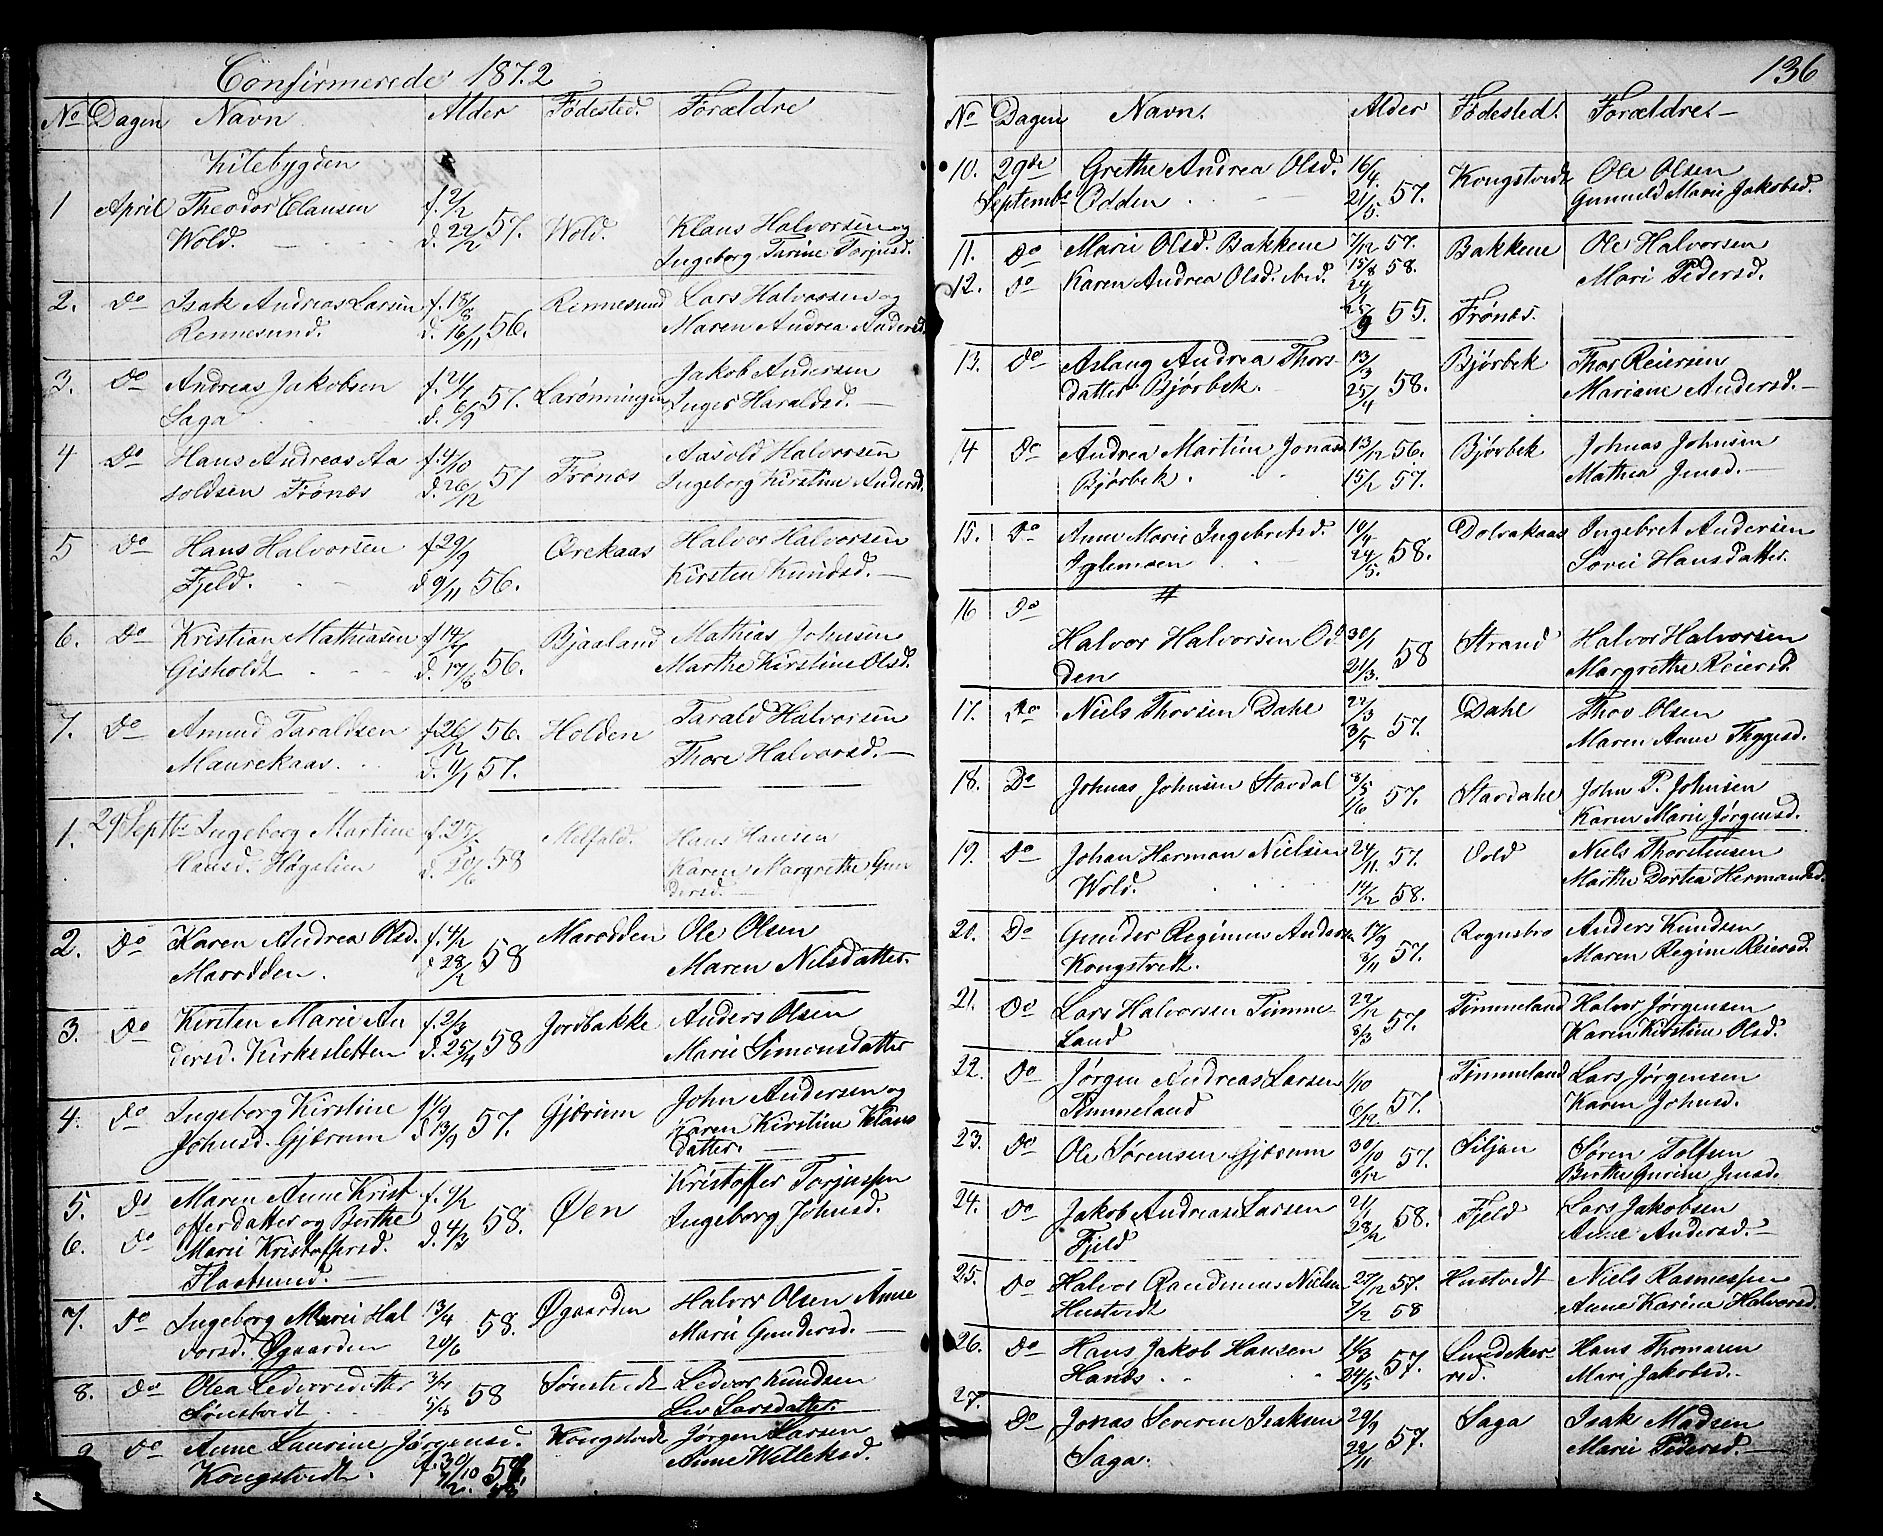 Confirmerede 1872
No Dagen Navn Alder Fødested. Forældre
Kilebygden
1 April Theodor Clausen f. 2/2
Wold. d. 22/2 57. Wold. Klaus Halvorsen og
Ingeborg Turine Torjusd.
2. Do Isak Andreas Larsen f. 18/8 Rennesund Lars Halvorsen og
Rennesund. d. 16/11 56. Maren Andrea Andersd.
3. Do Andreas Jakobsen f. 21/1 57. Larønningen Jakob Andersen
Saga d. 6/9 Inger Haraldsd.
4 Do Hans Andreas Aa f. 4/10 57 Frønæs Aasold Halvorsen
soldsen Frønæs d. 26/12 Ingeborg Kirstine Andersd.
5 Do Hans Halvorsen f. 29/9 Ørekaas Halvor Halvorsen
Fjeld. d. 9/11 56. Kirsten Knudsd.
6. Do Kristian Mathiasen f. 14/6 Bjaaland Mathias Johnsen
Gisholdt d. 17/8 56. Marthe Kirstine Olsd.
7. Do Amund Taraldsen f. 26/12 56. Holden Tarald Halvorsen
Maurekaas. d. 11/1 57. Thore Halvorsd.
1. 29 Septbr Ingeborg Martine f. 25/ Melfald. Hans Hansen
Hansd. Høgelien d. 20/6 58 Karen Margrethe Gun
dersd.
2. Do Karen Andrea Olsd. f. 4/2 58 Marodden Ole Olsen
Marodden. d. 28/2 Maren Nilsdatter
3. Do Kirsten Marie An f. 2/3 58 Jordbakke Anders Olsen
dersd. Kirkesletten d. 25/4 Marie Simonsdatter
4. Do Ingeborg Kirstine f. 1/9 57. Gjærum John Andersen og
Johnsd. Gjærum d. 13/9 Karen Kirstine Klaus
datter.
5. Do Maren Anne Krist f. 9/2 58. Øen Kristoffer Torjussen
offerdatter og Berthe Ingeborg Johnsd.
6. Do Marie Kristoffersd. d. 4/3
Flaatsund.
7. Do Ingeborg Marie Hal 13/4 58. Øgaarden Halvor Olsen Anne
vorsd. Øgaarden 20/6 Marie Gundersd.
8. Do Olea Ledvorsdatter 3/4 58 Sønstvedt Ledvor Knudsen
Sønstvedt Liv Larsdatter
9 Do Anne Laurine Jørgensd. f. 30/10 Kongstvedt Jørgen Larsen
Kongstvedt. Anne Willeksd.
136
No Dagen Navn. Alder Fødested. Forældre
10. 29de Grethe Andrea Olsd. 16/4. 57. Kongstvedt Ole Olsen
Septembr Odden 21/5. Gunneld Marie Jakobsd.
11. Do Marie Olsd. Bakkene 7/12 57. Bakkene Ole Halvorsen
15/8 58. Mari Pedersd.
12. Do Karen Andrea Olsd. ibid. 24/7
25/9 55. Frønæs.
13. Do Aslaug Andrea Thors 13/3 58. Bjørbek Thor Reiersen
datter Bjørbek. 25/4 Mariane Andersd.
14 Do Andrea Martine Jonasd 13/12 56. Bjørbek Johnas Johnsen
Bjørbek 15/2 57. Mathea Jensd.
15. Do Anne Marie Ingebretsd. 10/4 58. Dolvakaas Ingebret Andersen
Iglemoen 24/5. Sørei Hansdatter.
16 Do #
Halvor Halvorsen Od 30/1 58 Strand Halvor Halvorsen
den 21/3. Margrethe Reiersd.
17. Do Niels Thorsen Dahl 22/3 57. Dahl Thov Olsen
3/5 Maren Anne Thygesd.
18. Do Johnas Johnsen Stavdal 8/5 57. Stavdahl John P. Johnsen
1/6 Karen Marie Jørgensd.
19. Do Johan Herman Nielsen 24/11. 57. Vold Niels Thorstensen
Wold. 14/2 58. Marthe Dortea Hermansd.
20. Do Gunder Reginius Andersen 17/9 57. Rognsbro Anders Knudsen
Kongstvedt. 8/11 Maren Regine Reiersd.
21. Do Lars Halvorsen Timme 22/12 57. Timmeland Halvor Jørgensen
land 8/3 Karen Kirstine Olsd.
22. Do Jørgen Andreas Larsen 1/10 57. Timmeland Lars Jørgensen
Timmeland 6/12 Karen Johnsd.
23. Do Ole Sørensen Gjærum 30/10 57. Siljan Søren Tolfsen
6/12 Berthe Gurine Jensd.
24. Do Jakob Andreas Larsen 21/1 58. Fjeld Lars Jakobsen
Fjeld 28/2 Anne Andersd.
25. Do Halvor Rasmus Nielsen 27/12 57. Hustvedt Niels Rasmussen
Hustvedt 7/2 58 Anne Karine Halvorsd.
26. Do Hans Jakob Hansen 14/3 57. Lundeker- Hans Thomasen
Haræs. 24/5 red. Mari Jakobsd.
27. Do Jonas Severin Isaksen 29/9 57. Saga Isak Madsen
Saga. 22/11 Marie Pedersd.